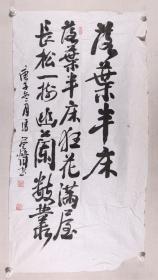 落葉半床
落葉半床狂花滿屋
長松一樹幽蘭數叢
庚子